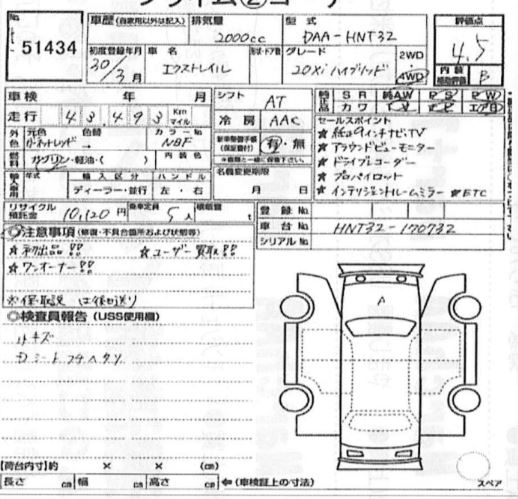 No.
51434
車歴(自家用以外は記入)
排気量
2000cc
型式
DAA-HNT32
評価点
4.5
初度登録年月
30/3月
車名
エクストレイル
形状・ドア数
グレード
20Xi ハイブリッド
2WD
4WD
内装
B
車検 年 月
シフト
AT
純正
SR
AW
PS
PW
カワ
走行
43,493
Km
マイル
冷房
AAC
セールスポイント
外色
元色
色替
カラーNo
NBF
(有)・無
★純正9インチナビTV
★アラウンドビューモニター
燃料
ガソリン・軽油・( )
内装色
★ドライブレコーダー
名義変更期限
月 日
★プロパイロット
★インテリジェントルームミラー ★ETC
輸入車用
年式
輸入区分
ハンドル
ディーラー・並行
左・右
リサイクル預託金
10,120円
乗車定員
5人
積載量
t
登録No.
車台No.
HNT32-170732
シリアルNo.
◎注意事項(修復・不具合箇所および状態等)
★初出品!!
★ユーザー買取!!
★ワンオーナー!!
※保取説は後日送り
◎検査員報告(USS使用欄)
キズ
シート
A
【荷台内寸】約 × × (cm)
長さ cm 幅 cm 高さ cm ⇐(車検証上の寸法)
スペア